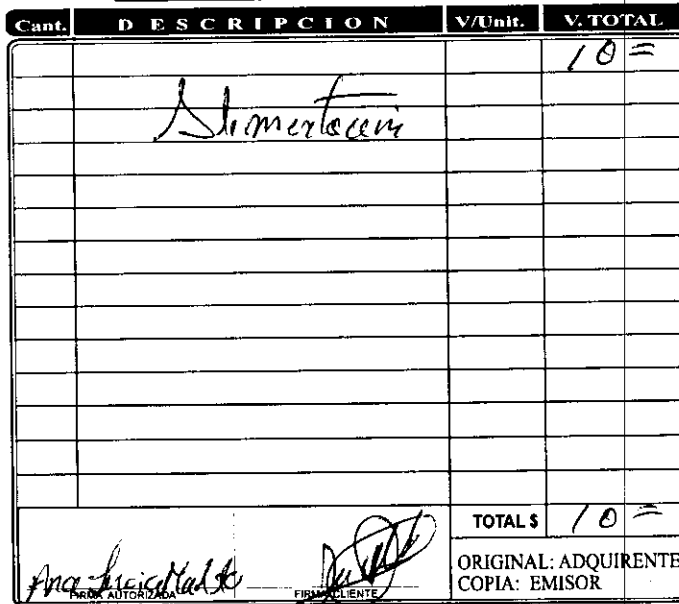 Cant. DESCRIPCION V/Unit. V. TOTAL
10=
Alimentación
TOTAL $ 10=
Ana Lucia
FIRMA AUTORIZADA FIRMA CLIENTE
ORIGINAL: ADQUIRENTE
COPIA: EMISOR